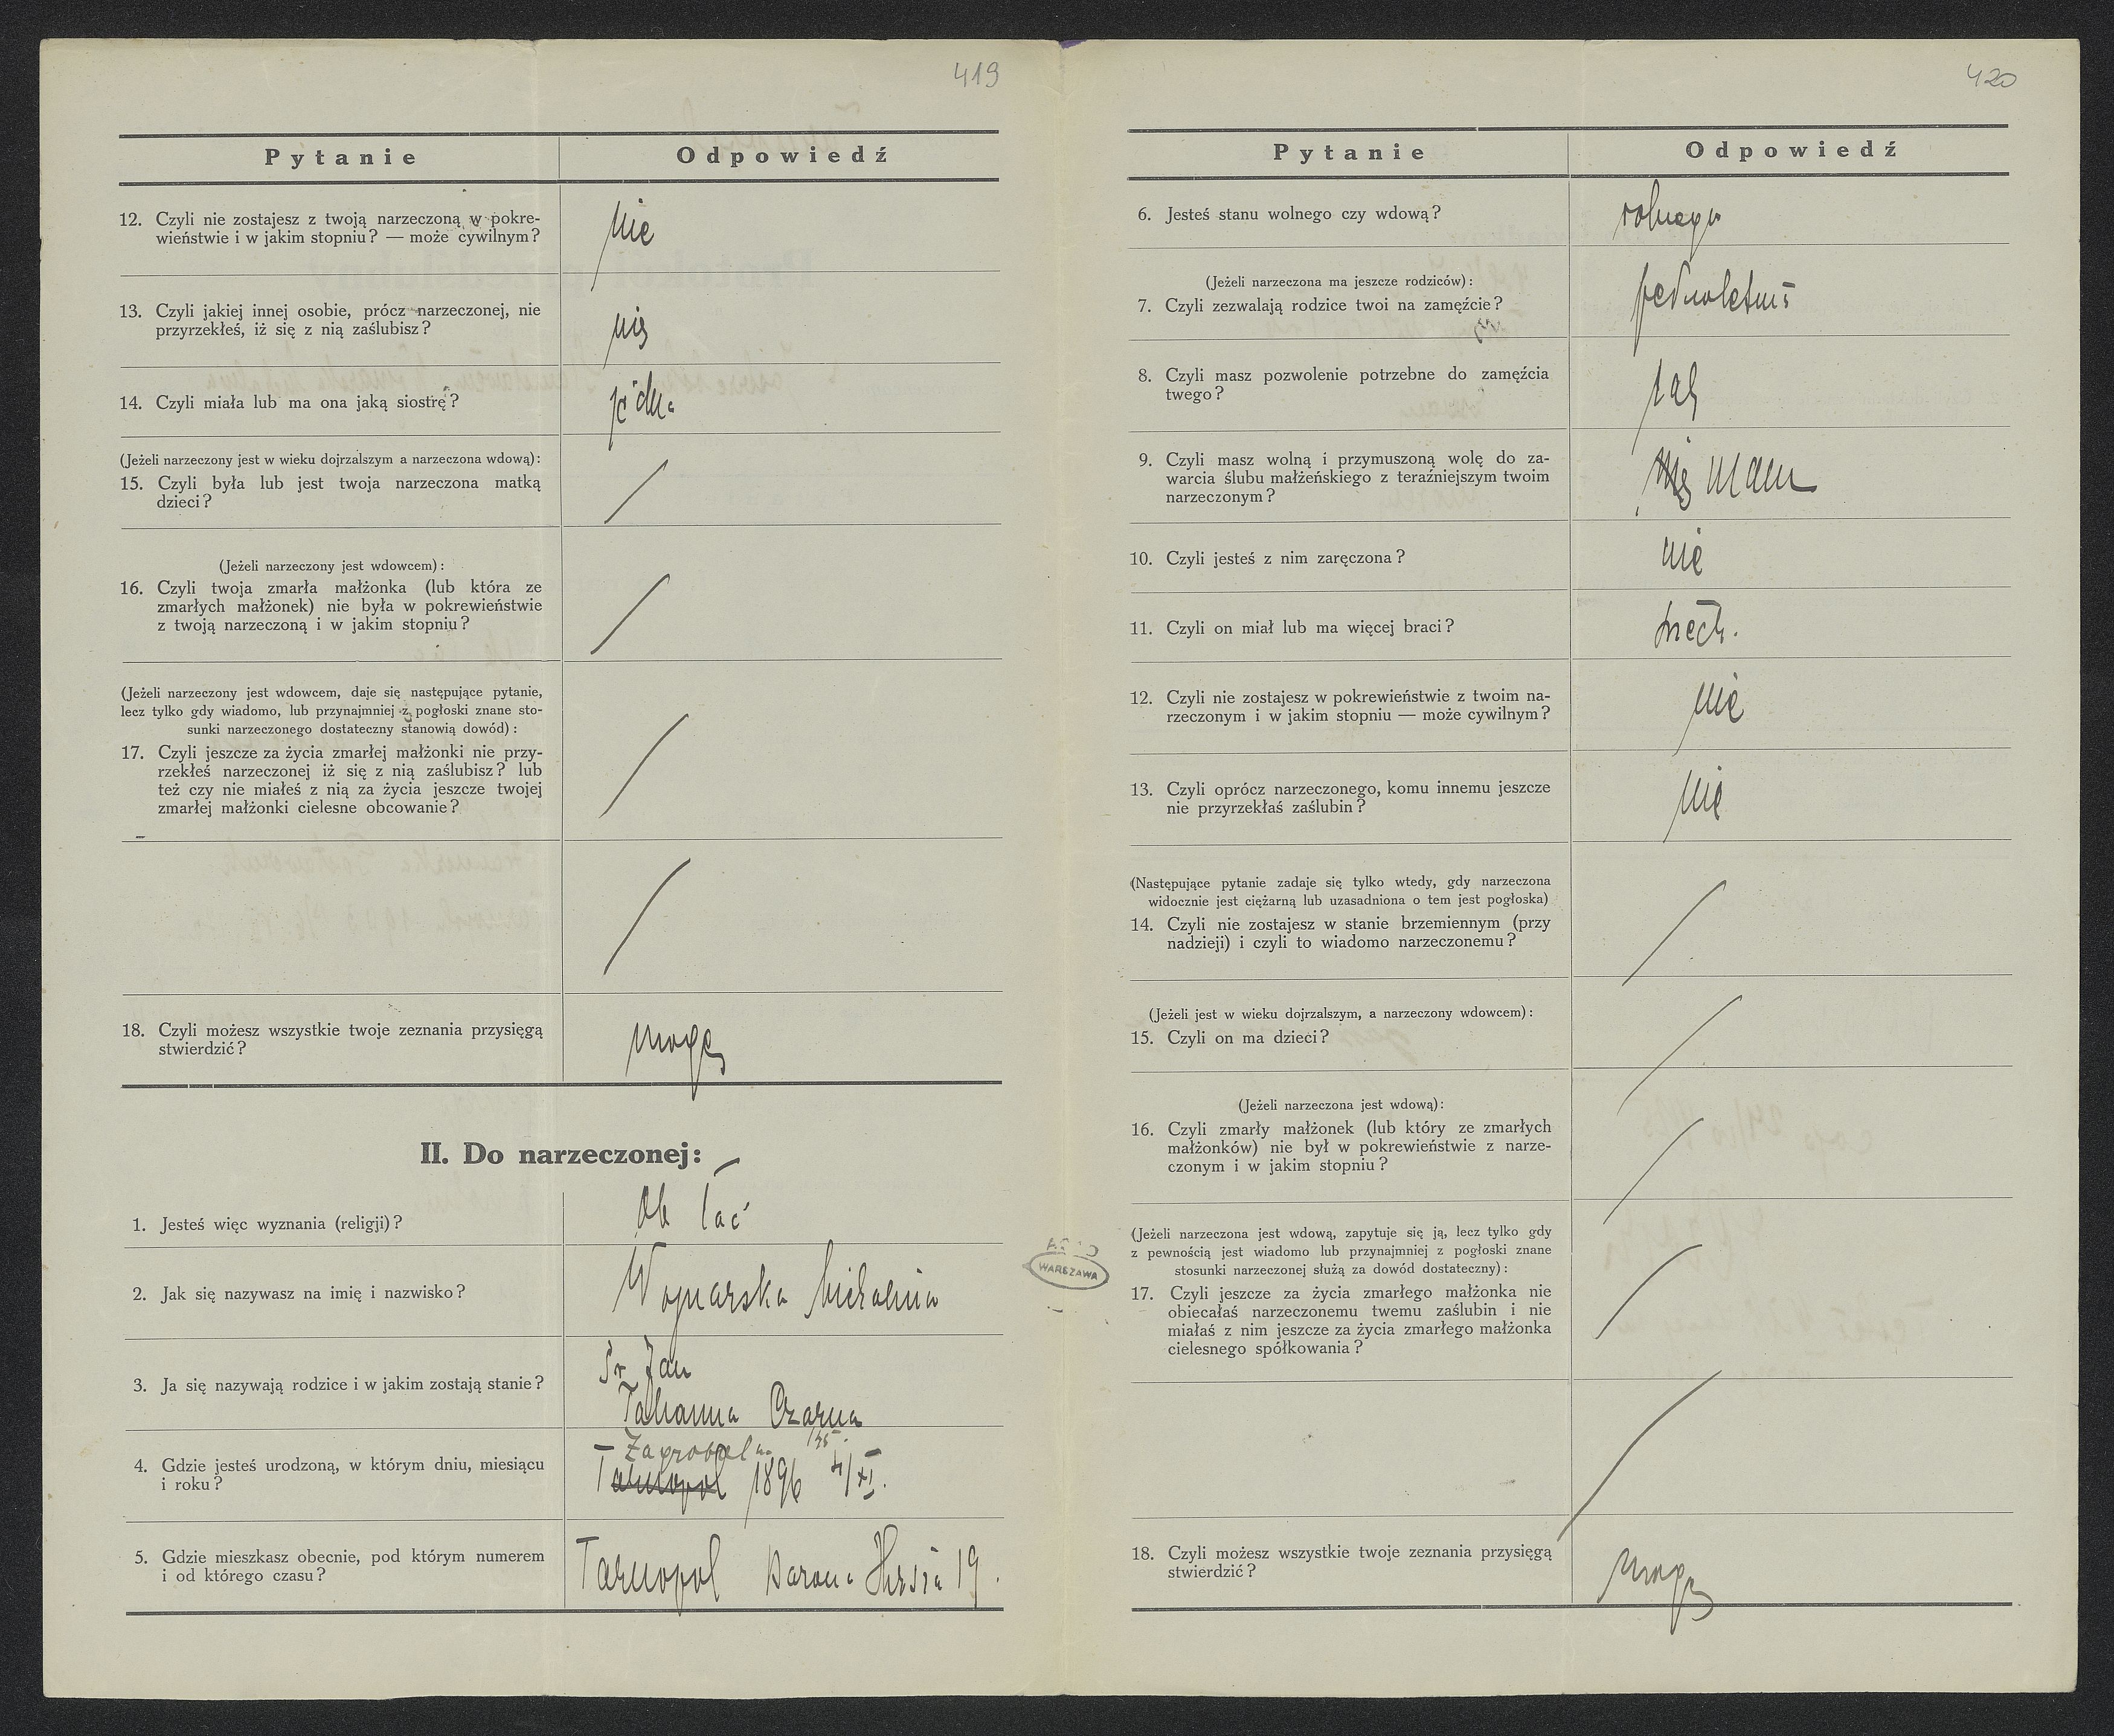 419
Pytanie Odpowiedź
12. Czyli nie zostajesz z twoją narzeczoną w pokre-
wieństwie i w jakim stopniu? — może cywilnym?
nie
13. Czyli jakiej innej osobie, prócz narzeczonej, nie
przyrzekłeś, iż się z nią zaślubisz?
nie
14. Czyli miała lub ma ona jaką siostrę?
(Jeżeli narzeczony jest w wieku dojrzalszym a narzeczona wdową):
15. Czyli była lub jest twoja narzeczona matką
dzieci?
/
(Jeżeli narzeczony jest wdowcem):
16. Czyli twoja zmarła małżonka (lub która ze
zmarłych małżonek) nie była w pokrewieństwie
z twoją narzeczoną i w jakim stopniu?
/
(Jeżeli narzeczony jest wdowcem, daje się następujące pytanie,
lecz tylko gdy wiadomo, lub przynajmniej z pogłoski znane sto-
sunki narzeczonego dostateczny stanowią dowód):
17. Czyli jeszcze za życia zmarłej małżonki nie przy-
rzekłeś narzeczonej iż się z nią zaślubisz? lub
też czy nie miałeś z nią za życia jeszcze twojej
zmarłej małżonki cielesne obcowanie?
/
/
18. Czyli możesz wszystkie twoje zeznania przysięgą
stwierdzić?
mogę
II. Do narzeczonej:
1. Jesteś więc wyznania (religji)?
ob łać
2. Jak się nazywasz na imię i nazwisko?
Wojnarska Michalina
3. Ja się nazywają rodzice i w jakim zostają stanie?
Jan
Czarna
4. Gdzie jesteś urodzoną, w którym dniu, miesiącu
i roku?
Zagrobela
Tarnopol 1896 4/XI.
5. Gdzie mieszkasz obecnie, pod którym numerem
i od którego czasu?
Tarnopol Barona Hirsza 19.
WARSZAWA
420
Pytanie Odpowiedź
6. Jesteś stanu wolnego czy wdową?
wolnego
(Jeżeli narzeczona ma jeszcze rodziców):
7. Czyli zezwalają rodzice twoi na zamęźcie?
8. Czyli masz pozwolenie potrzebne do zamęźcia
twego?
tak
9. Czyli masz wolną i przymuszoną wolę do za-
warcia ślubu małżeńskiego z teraźniejszym twoim
narzeczonym?
nie mam
10. Czyli jesteś z nim zaręczona?
nie
11. Czyli on miał lub ma więcej braci?
trzech.
12. Czyli nie zostajesz w pokrewieństwie z twoim na-
rzeczonym i w jakim stopniu — może cywilnym?
nie
13. Czyli oprócz narzeczonego, komu innemu jeszcze
nie przyrzekłaś zaślubin?
nie
(Następujące pytanie zadaje się tylko wtedy, gdy narzeczona
widocznie jest ciężarną lub uzasadniona o tem jest pogłoska)
14. Czyli nie zostajesz w stanie brzemiennym (przy
nadzieji) i czyli to wiadomo narzeczonemu?
/
(Jeżeli jest w wieku dojrzalszym, a narzeczony wdowcem):
15. Czyli on ma dzieci?
/
(Jeżeli narzeczona jest wdową):
16. Czyli zmarły małżonek (lub który ze zmarłych
małżonków) nie był w pokrewieństwie z narze-
czonym i w jakim stopniu?
/
(Jeżeli narzeczona jest wdową, zapytuje się ją, lecz tylko gdy
z pewnością jest wiadomo lub przynajmniej z pogłoski znane
stosunki narzeczonej służą za dowód dostateczny):
17. Czyli jeszcze za życia zmarłego małżonka nie
obiecałaś narzeczonemu twemu zaślubin i nie
miałaś z nim jeszcze za życia zmarłego małżonka
cielesnego spółkowania?
/
/
18. Czyli możesz wszystkie twoje zeznania przysięgą
stwierdzić?
mogę